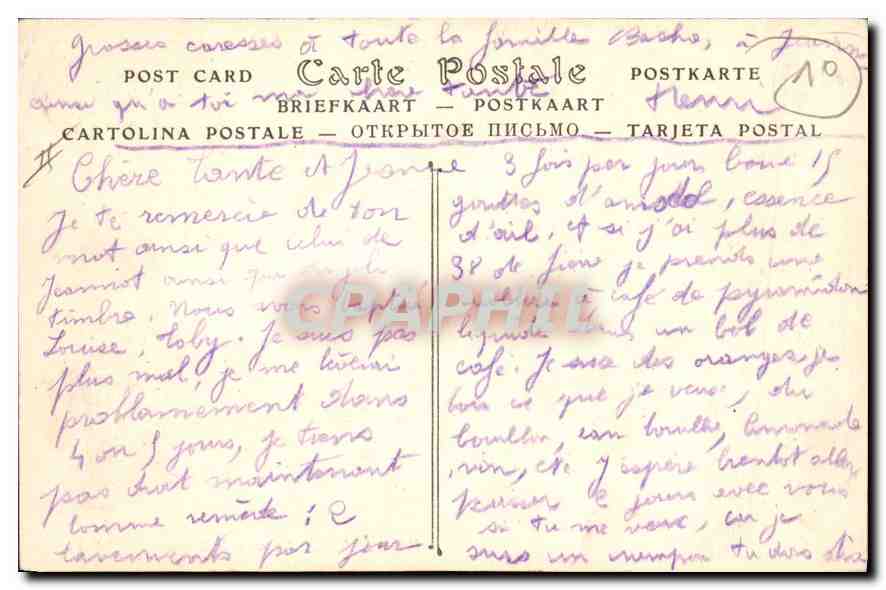 Grosses caresses à toute la famille Bacha, à Jeanne
10
POST CARD Carte Postale POSTKARTE
ainsi qu'à toi ma chère tante Henri
BRIEFKAART — POSTKAART
CARTOLINA POSTALE — ОТКРЫТОЕ ПИСЬМО — TARJETA POSTAL
II
Chère Tante et Jeanne
Je te remercie de ton
mot ainsi que celui de
Jeannot ainsi que
timbre. Nous
Louise, Toby. Je suis pas
plus mal, je me lèverai
probablement dans
4 ou 5 jours, je tiens
pas droit maintenant
Comme remède : 2
lavements par jour
3 fois par jours 15
gouttes d', essence
d'ail, et si j'ai plus de
38 de fièvre je prends une
à café de pyramidon
dans un bol de
café. Je suce des oranges, je
bois ce que je veux, du
bouillon, eau bouillie, limonade
, vin, etc J'espère bientot aller
passer 2 jours avec vous
si tu me veux, car je
suis un tu dois être
CPAPHIL